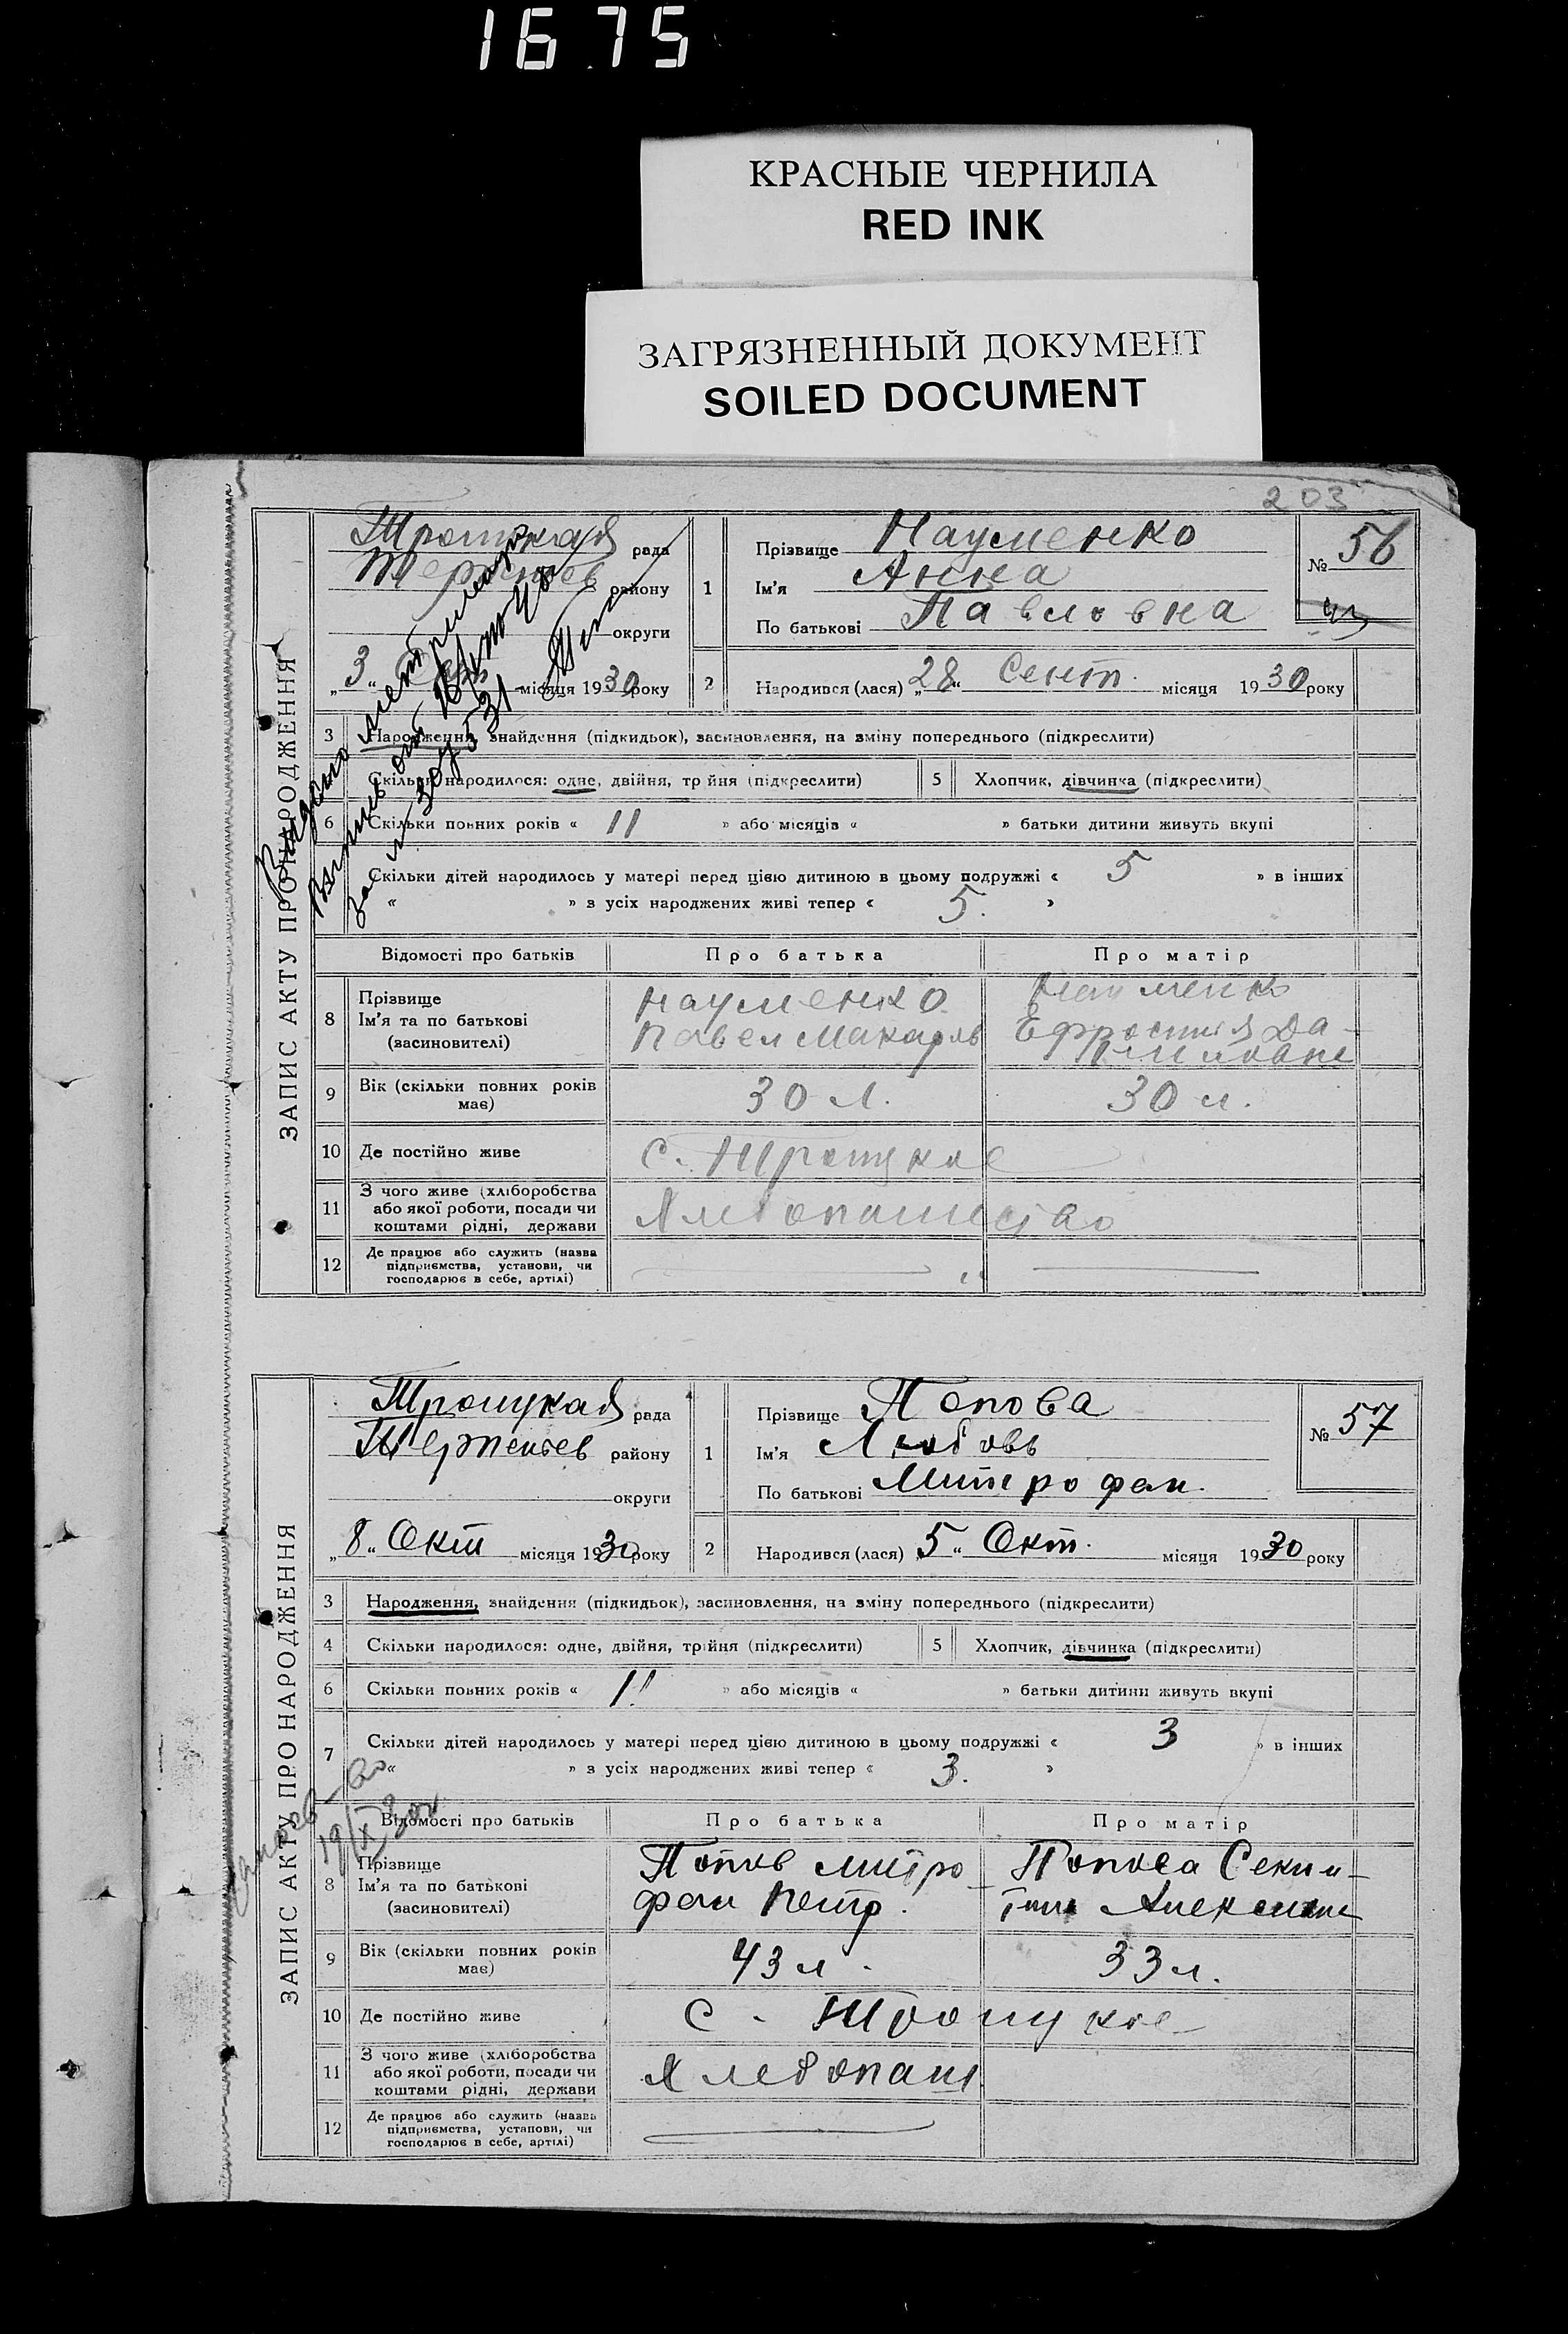 16.75
КРАСНЫЕ ЧЕРНИЛА
RED INK
ЗАГРЯЗНЕННЫЙ ДОКУМЕНТ
SOILED DOCUMENT
203
ЗАПИС АКТУ ПРО НАРОДЖЕННЯ
Троицкая рада
району
округи
„3“ місяця 1930 року
1 Прізвище Науменко
Ім'я Анна
По батькові Павловна
№ 56
2 Народився (лася) „28“ Сент. місяця 1930 року
3 Народження, знайдення (підкидьок), засиновлення, на зміну попереднього (підкреслити)
Скільки народилося: одне, двійня, трійня (підкреслити) 5 Хлопчик, дівчинка (підкреслити)
6 Скільки повних років « 11 » або місяців « » батьки дитини живуть вкупі
Скільки дітей народилось у матері перед цією дитиною в цьому подружжі « 5 » в інших
« » з усіх народжених живі тепер « 5. »
Відомості про батьків Про батька Про матір
8 Прізвище
Ім'я та по батькові
(засиновителі)
Науменко
Павел Макаров
Науменко
Ефросиния Да-
9 Вік (скільки повних років
має)
30 л. 30 л.
10 Де постійно живе с. Троицкое
11 З чого живе (хліборобства
або якої роботи, посади чи
коштами рідні, держави
Хлебопашество
12 Де працює або служить (назва
підприємства, установи, чи
господарює в себе, артілі)
ЗАПИС АКТУ ПРО НАРОДЖЕННЯ
Троицкая рада
району
округи
„8“ Окт місяця 1930 року
1 Прізвище Попова
Ім'я Любовь
По батькові Митрофан.
№ 57
2 Народився (лася) „5“ Окт. місяця 1930 року
3 Народження, знайдення (підкидьок), засиновлення, на зміну попереднього (підкреслити)
4 Скільки народилося: одне, двійня, трійня (підкреслити) 5 Хлопчик, дівчинка (підкреслити)
6 Скільки повних років « 11 » або місяців « » батьки дитини живуть вкупі
7 Скільки дітей народилось у матері перед цією дитиною в цьому подружжі « 3 » в інших
« » з усіх народжених живі тепер « 3. »
Відомості про батьків Про батька Про матір
8 Прізвище
Ім'я та по батькові
(засиновителі)
Попов Митро
фан Петр.
Попова
9 Вік (скільки повних років
має)
43 л. 33 л.
10 Де постійно живе с. Троицкое
11 З чого живе (хліборобства
або якої роботи, посади чи
коштами рідні, держави
Хлебопаш
12 Де працює або служить (назва
підприємства, установи, чи
господарює в себе, артілі)